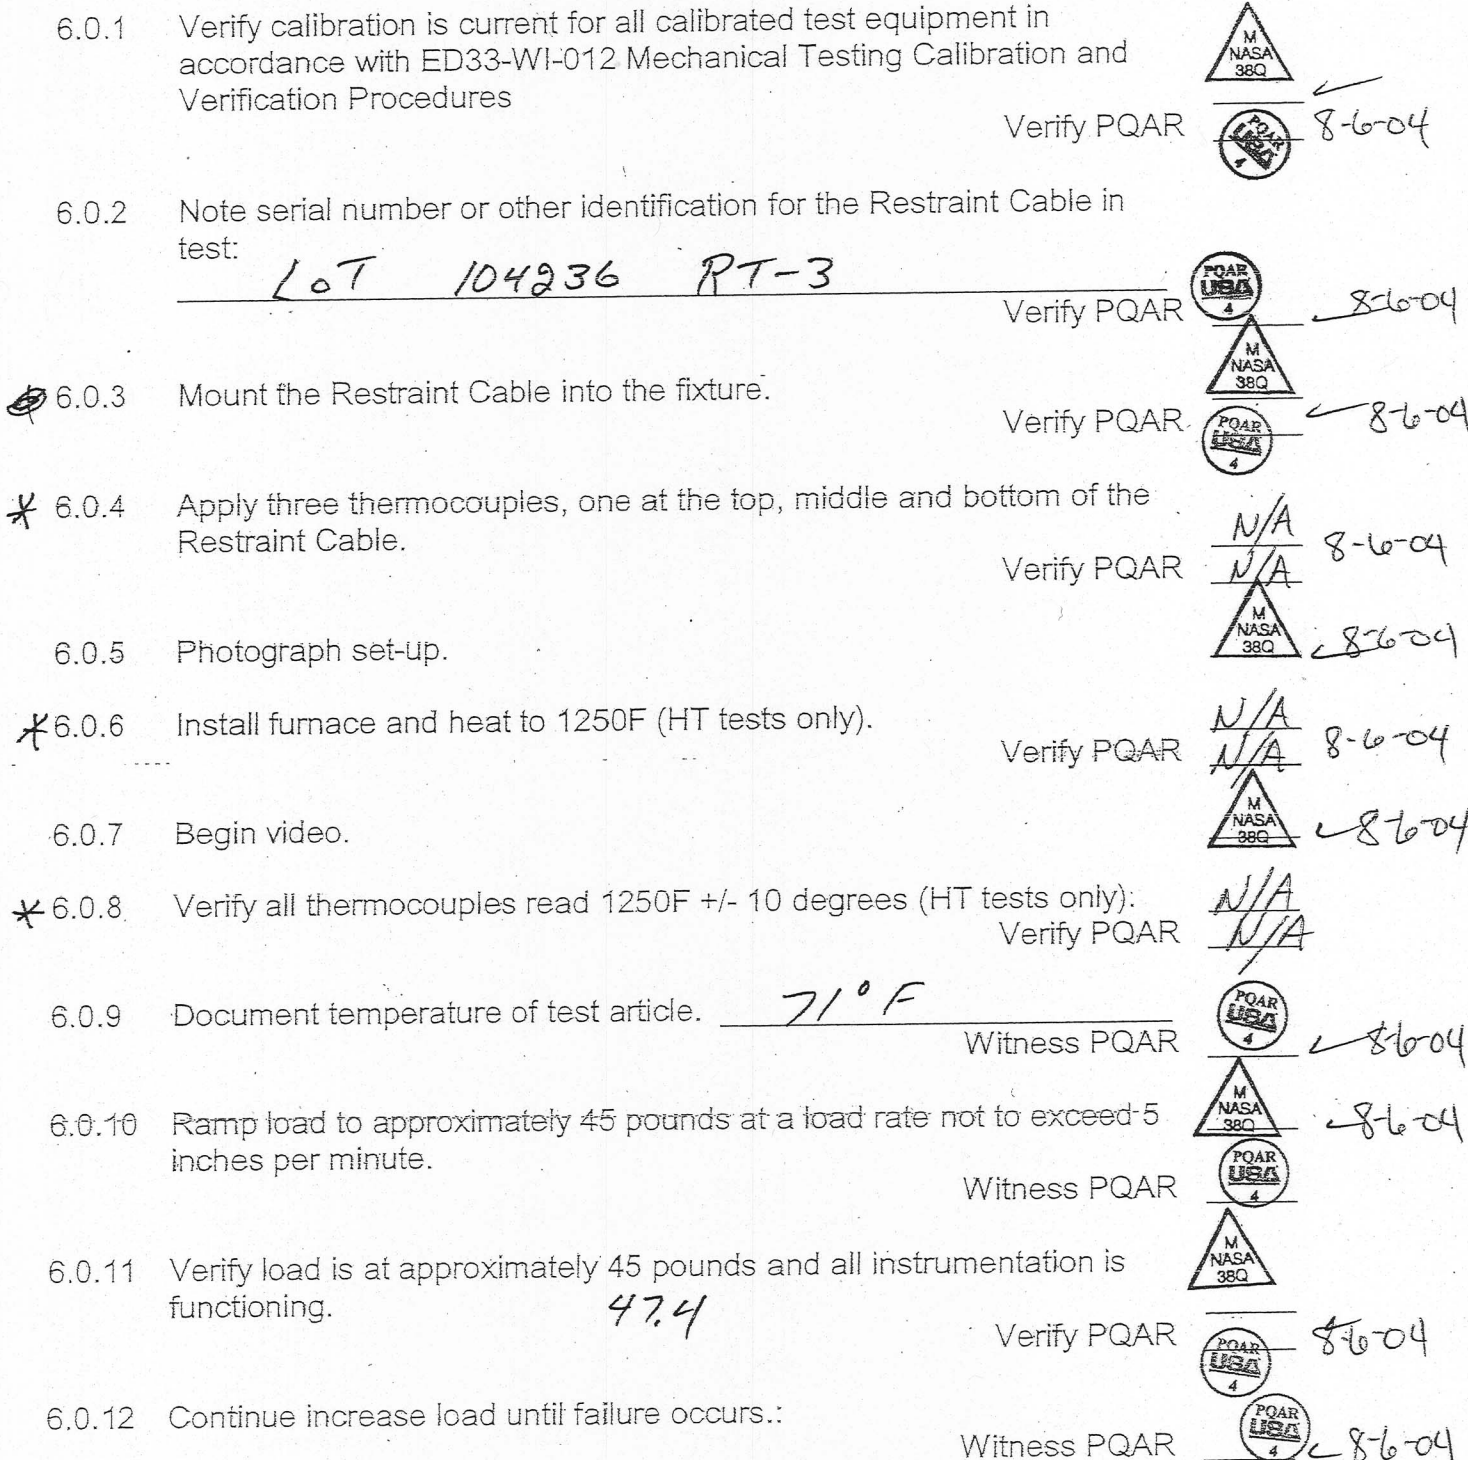 6.0.1 Verify calibration is current for all calibrated test equipment in
accordance with ED33-WI-012 Mechanical Testing Calibration and
Verification Procedures
M
NASA
38Q
Verify PQAR
PQAR
USA
4
8-6-04
6.0.2 Note serial number or other identification for the Restraint Cable in
test:
LoT 104236 RT-3
Verify PQAR
PQAR
USA
4
8-6-04
M
NASA
38Q
6.0.3 Mount the Restraint Cable into the fixture.
Verify PQAR
PQAR
USA
4
8-6-04
* 6.0.4 Apply three thermocouples, one at the top, middle and bottom of the
Restraint Cable.
N/A
8-6-04
Verify PQAR N/A
M
NASA
38Q
6.0.5 Photograph set-up. 8-6-04
* 6.0.6 Install furnace and heat to 1250F (HT tests only). N/A
Verify PQAR N/A 8-6-04
M
NASA
38Q
6.0.7 Begin video. 8-6-04
* 6.0.8 Verify all thermocouples read 1250F +/- 10 degrees (HT tests only): N/A
Verify PQAR N/A
6.0.9 Document temperature of test article. 71° F
Witness PQAR
PQAR
USA
4
8-6-04
6.0.10 Ramp load to approximately 45 pounds at a load rate not to exceed 5
inches per minute.
M
NASA
38Q
8-6-04
Witness PQAR
PQAR
USA
4
6.0.11 Verify load is at approximately 45 pounds and all instrumentation is
functioning. 47.4
M
NASA
38Q
Verify PQAR
PQAR
USA
4
8-6-04
6.0.12 Continue increase load until failure occurs.:
Witness PQAR
PQAR
USA
4
8-6-04